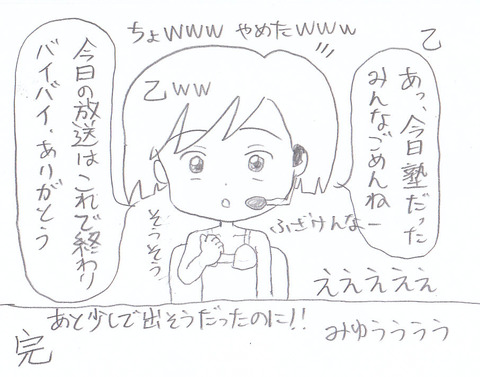 ちょwww やめたwww
乙
あっ、今日塾だった
みんなごめんねー
乙ww
今日の放送はこれで終わり
バイバイ、ありがとう
そっそう
ふざけんなー
えええええ
あと少しで出そうだったのに!!
みゅうううう
完